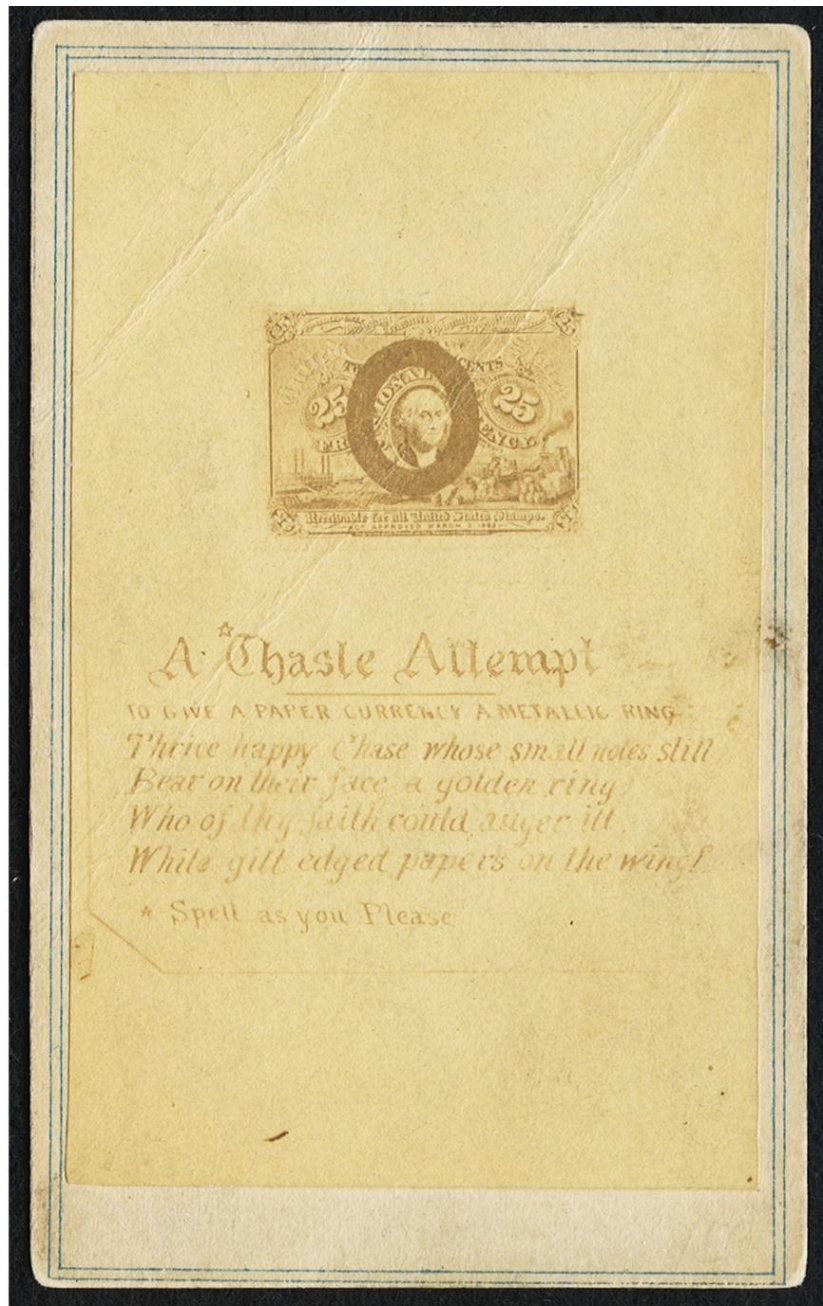 25 CENTS 25
Receivable for all United States Stamps.
ACT APPROVED MARCH 3 1863
A *Chaste Attempt
TO GIVE A PAPER CURRENCY A METALLIC RING
Thrice happy Chase whose small notes still
Bear on their face a golden ring
Who of thy faith could auger ill
While gilt edged papers on the wing!
* Spell as you Please